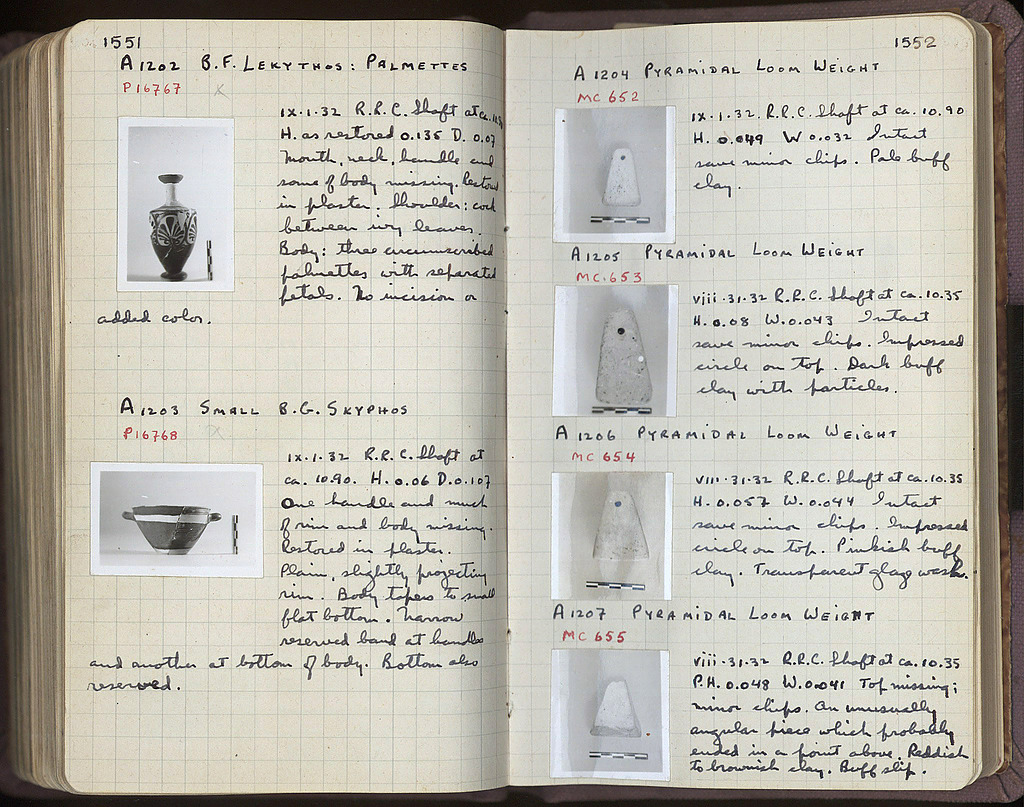 1551
A 1202 B.F. LEKYTHOS: PALMETTES
P 16767 X
ix.1.32 R.R.C. Shaft at ca. 10.90
H. as restored 0.135 D. 0.07
Mouth, neck, handle and
some of body missing. Restored
in plaster. Shoulder: cock
between ivy leaves.
Body: three circumscribed
palmettes with separated
petals. No incision or
added color.
A 1203 SMALL B.G. SKYPHOS
P 16768 X
ix.1.32 R.R.C. Shaft at
ca. 10.90. H. 0.06 D. 0.107
One handle and much
of rim and body missing.
Restored in plaster.
Plain, slightly projecting
rim. Body tapers to small
flat bottom. Narrow
reserved band at handles
and another at bottom of body. Bottom also
reserved.
1552
A 1204 PYRAMIDAL LOOM WEIGHT
MC 652
ix.1.32 R.R.C. Shaft at ca. 10.90
H. 0.049 W 0.032 Intact
save minor chips. Pale buff
clay.
A 1205 PYRAMIDAL LOOM WEIGHT
MC.653
viii.31.32 R.R.C. Shaft at ca. 10.35
H. 0.08 W. 0.043 Intact
save minor chips. Impressed
circle on top. Dark buff
clay with particles.
A 1206 PYRAMIDAL LOOM WEIGHT
MC 654
viii.31.32 R.R.C. Shaft at ca. 10.35
H. 0.057 W. 0.044 Intact
save minor chips. Impressed
circle on top. Pinkish buff
clay. Transparent glaze wash.
A 1207 PYRAMIDAL LOOM WEIGHT
MC 655
viii.31.32 R.R.C. Shaft at ca. 10.35
P.H. 0.048 W. 0.041 Top missing;
minor chips. An unusually
angular piece which probably
ended in a point above. Reddish
to brownish clay. Buff slip.